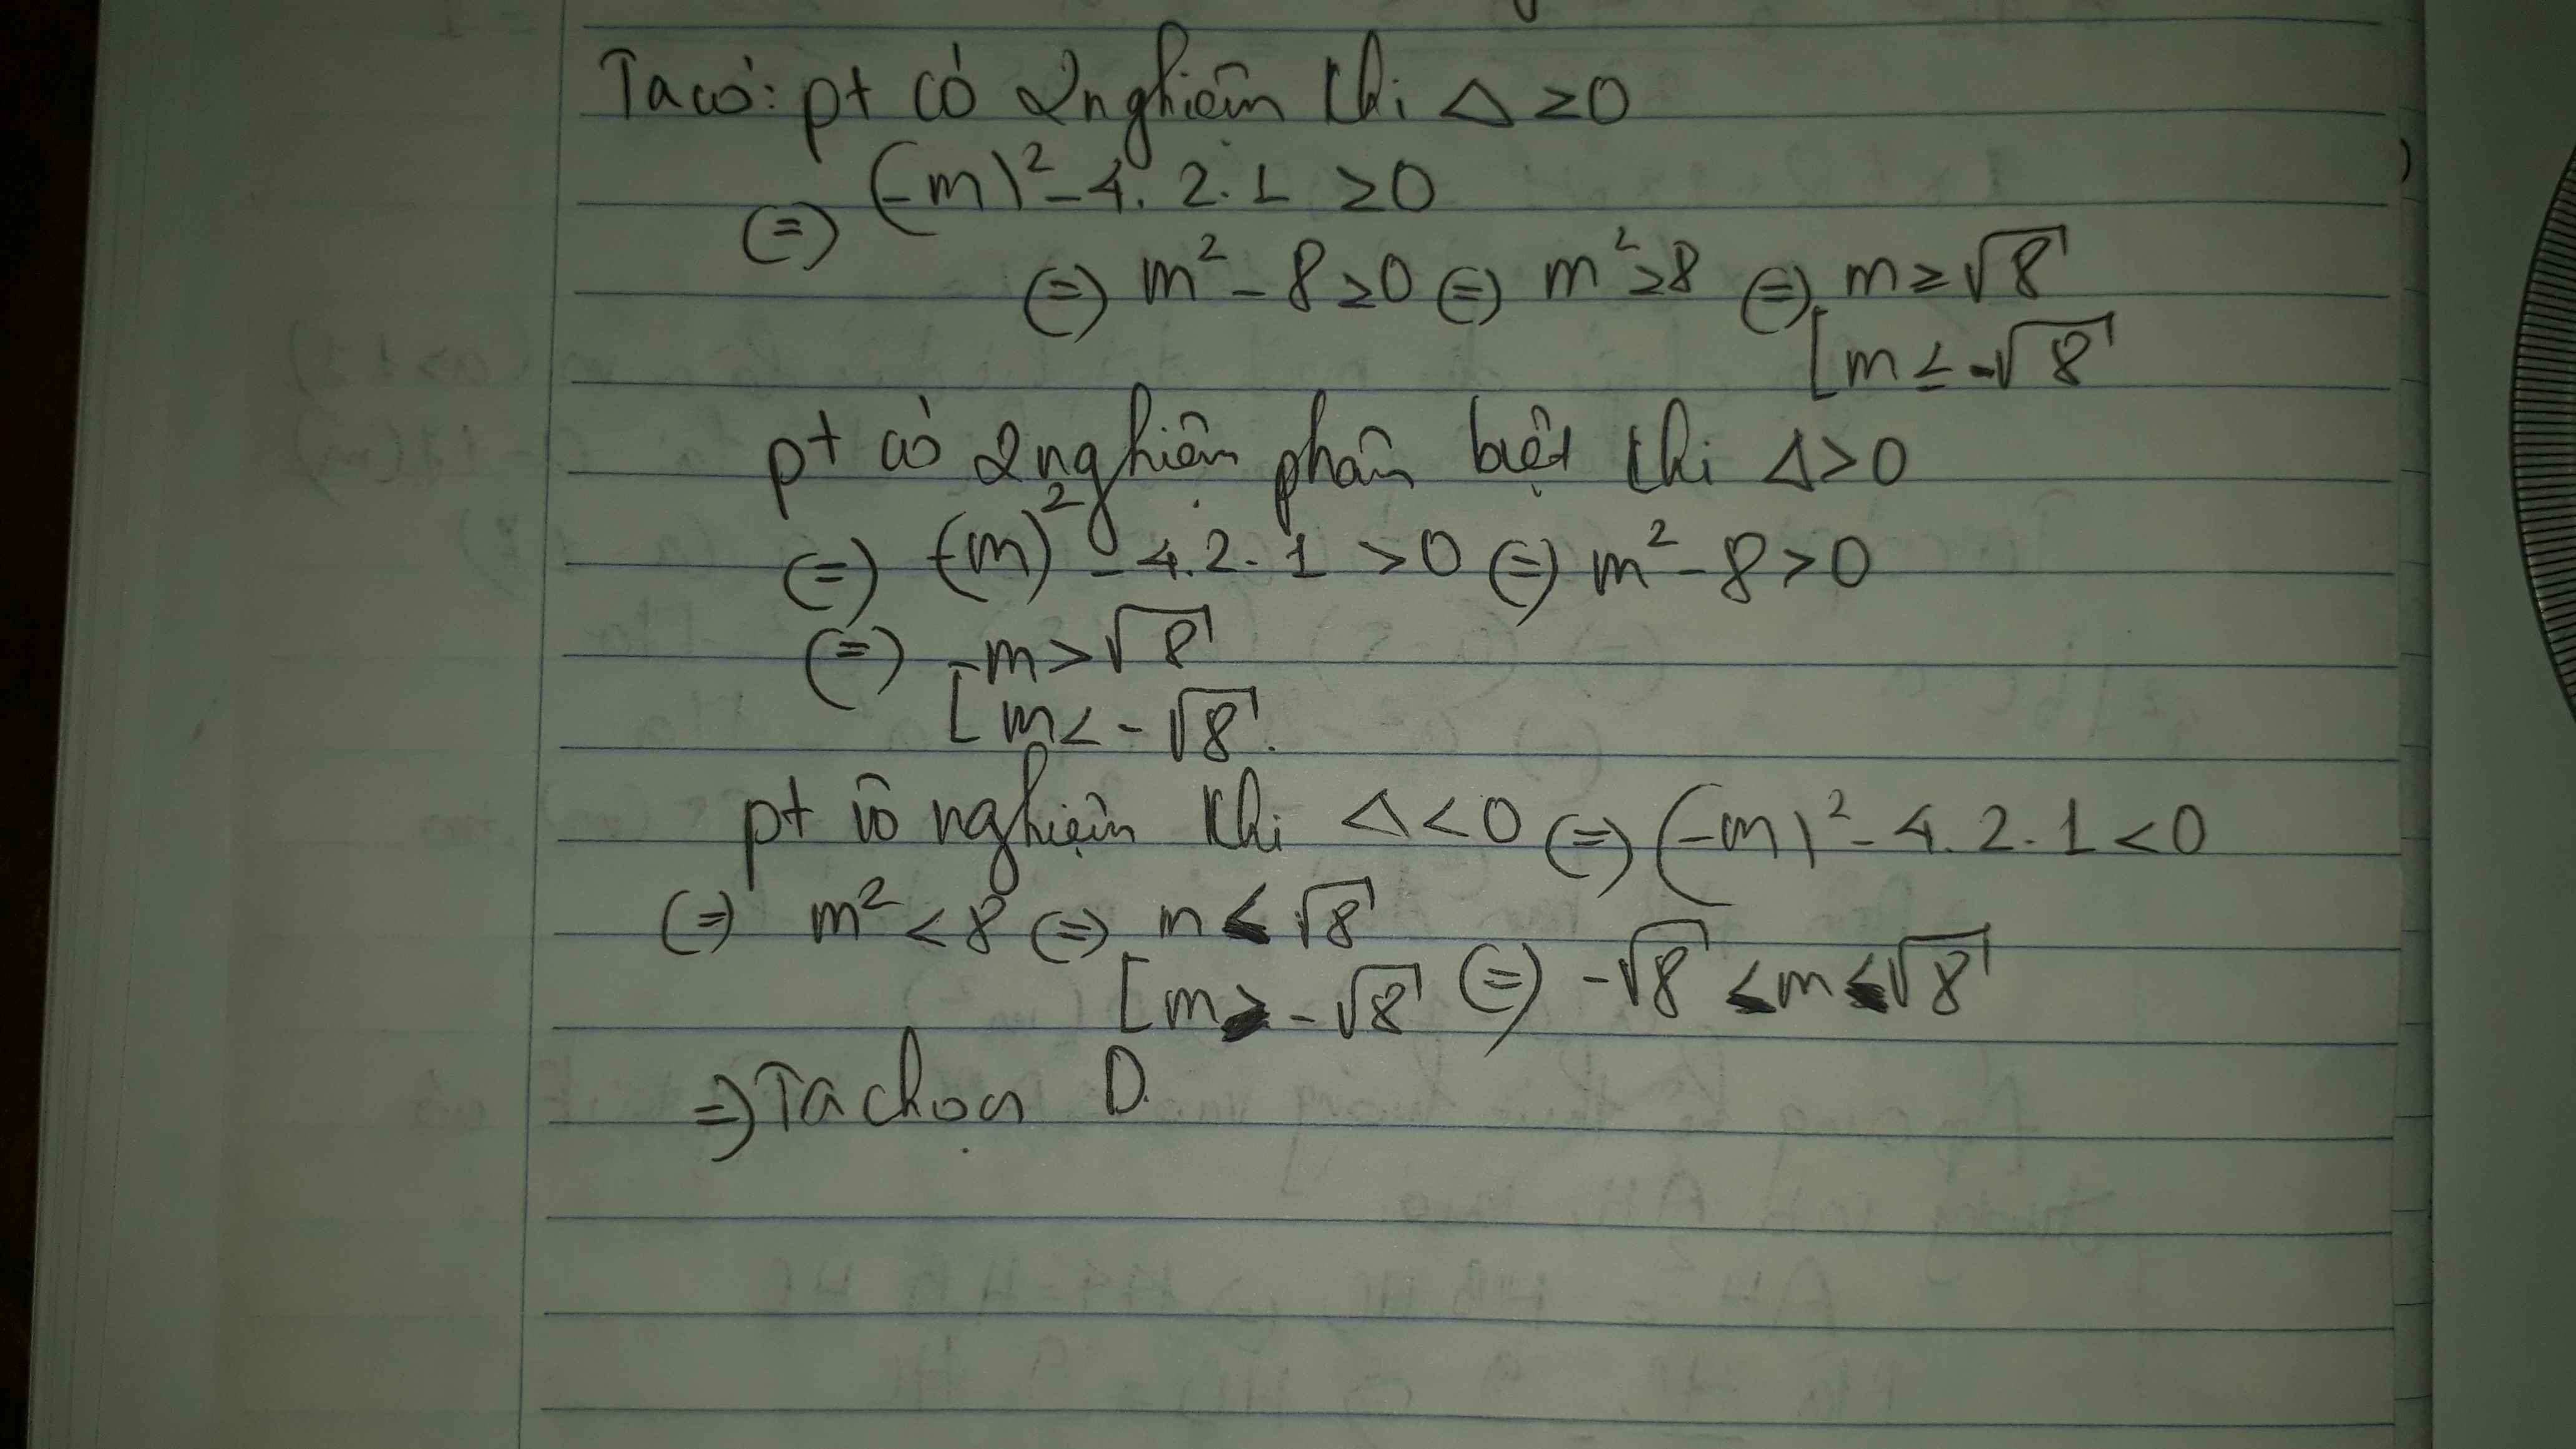 Ta có: pt có 2 nghiệm khi Δ ≥ 0
(=) (-m)² - 4. 2. 1 ≥ 0
(=) m² - 8 ≥ 0 (=) m² ≥ 8 (=) [ m ≥ √8
m ≤ -√8
pt có 2 nghiệm phân biệt khi Δ > 0
(=) (-m)² - 4. 2. 1 > 0 (=) m² - 8 > 0
(=) [ m > √8
m < -√8.
pt vô nghiệm khi Δ < 0 (=) (-m)² - 4. 2. 1 < 0
(=) m² < 8 (=) [ m ≤ √8
m ≥ -√8 (=) -√8 ≤ m ≤ √8
=> Ta chọn D.